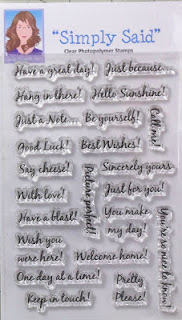 "Simply Said"
Clear Photopolymer Stamps
Have a great day!
Just because...
Hang in there!
Hello Sunshine!
Just a Note...
Be yourself!
Call me!
Good Luck!
Best Wishes!
Say cheese!
Picture perfect!
Sincerely yours
With love!
Just for you!
Have a blast!
You make
my day!
You're so nice to know!
Wish you
were here!
Welcome home!
One day at a time!
Pretty
Please!
Keep in touch!